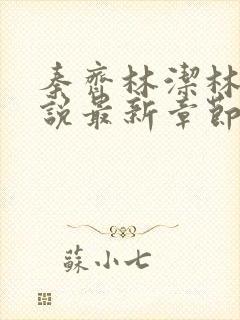 秦齊林潔林
說最新章節
蘇小七